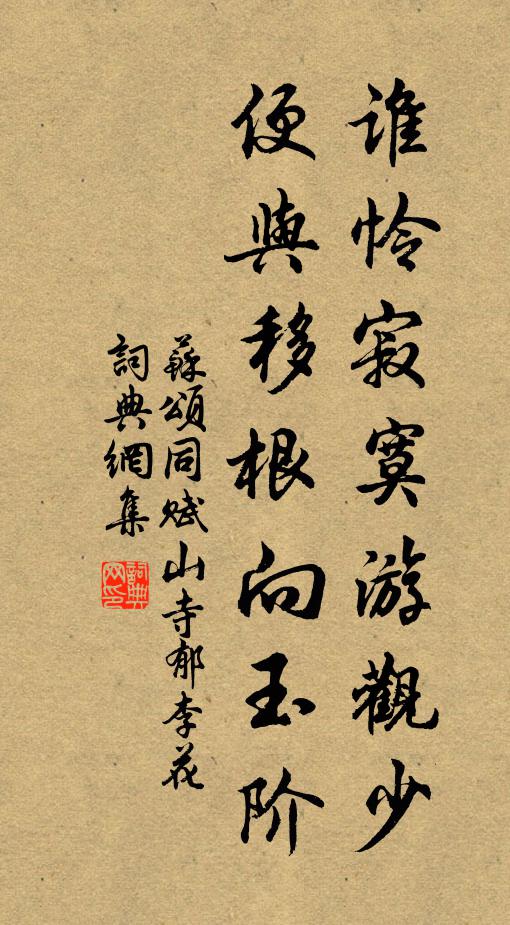 谁怜寂寞游觀少
便與移根向玉阶
蘇頌同赋山寺郁李花
詞典網集
詞典网印